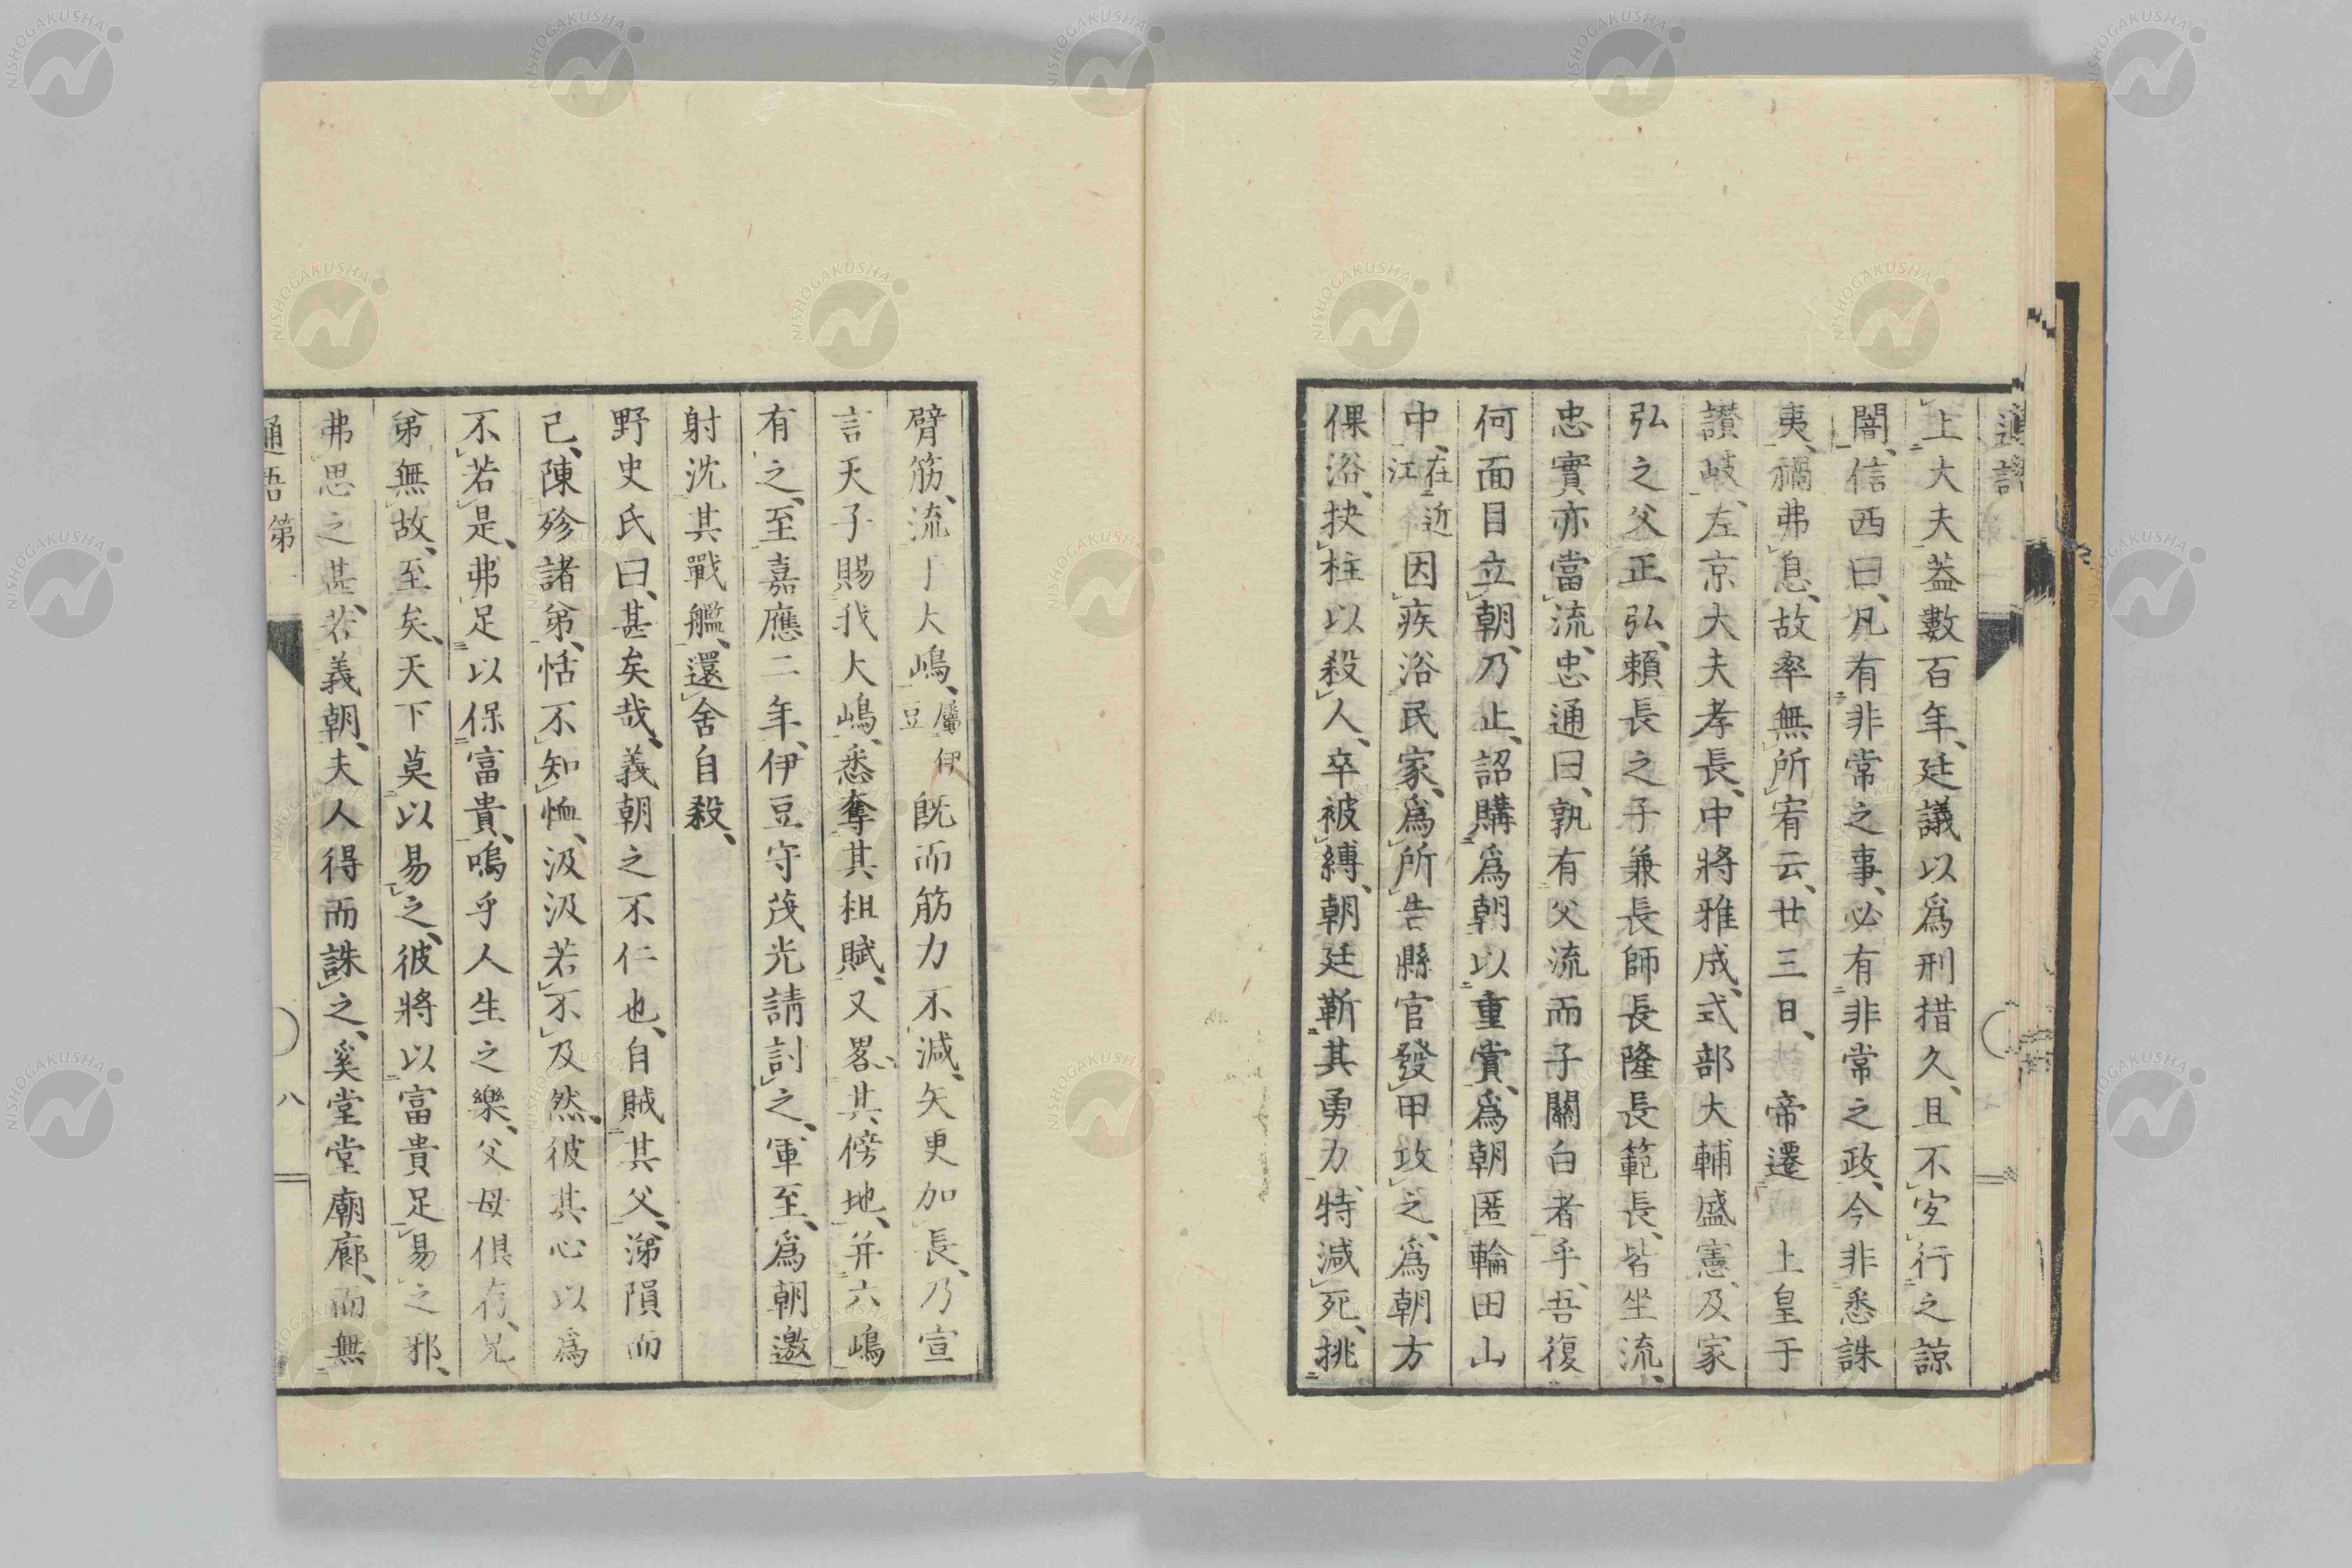 上大夫、蓋數百年、廷議以爲刑措久、且不宜行之諒
闇、信西曰、凡有非常之事、必有非常之政、今非悉誅
夷、禍弗息、故率無所宥云、廿三日、帝遷上皇于
讃岐、左京大夫孝長、中將雅成、式部大輔盛憲、及家
弘之父正弘、賴長之子兼長師長隆長範長、皆坐流、
忠實亦當流、忠通曰、孰有父流而子關白者乎、吾復
何面目立朝、乃止、詔購爲朝以重賞、爲朝匿輪田山
中、在近江因疾浴民家、爲所告、縣官發甲攻之、爲朝方
倮浴、抉柱以殺人、卒被縛、朝廷靳其勇力、特減死、挑
臂筋、流于大嶋、屬伊豆既而筋力不減、矢更加長、乃宣
言天子賜我大嶋、悉奪其租賦、又畧其傍地、幷六嶋
有之、至嘉應二年、伊豆守茂光請討之、軍至、爲朝邀
射沈其戰艦、還舍自殺、
野史氏曰、甚矣哉、義朝之不仁也、自賊其父、涕隕而
已、陳殄諸弟、恬不知恤、汲汲若不及然、彼其心以爲
不若是、弗足以保富貴、嗚乎人生之樂、父母俱存、兄
弟無故、至矣、天下莫以易之、彼將以富貴足易之邪、
弗思之甚、若義朝、夫人得而誅之、奚堂堂廟廊、而無
通語第一
八
NISHOGAKUSHA